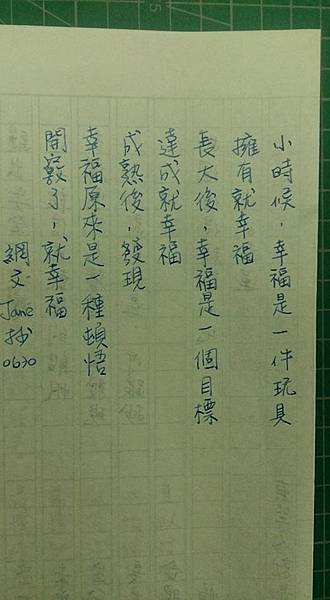 小時候，幸福是一件玩具
擁有就幸福
長大後，幸福是一個目標
達成就幸福
成熟後，發現
幸福原來是一種頓悟
開竅了，就幸福
網文
Jane
抄
0630